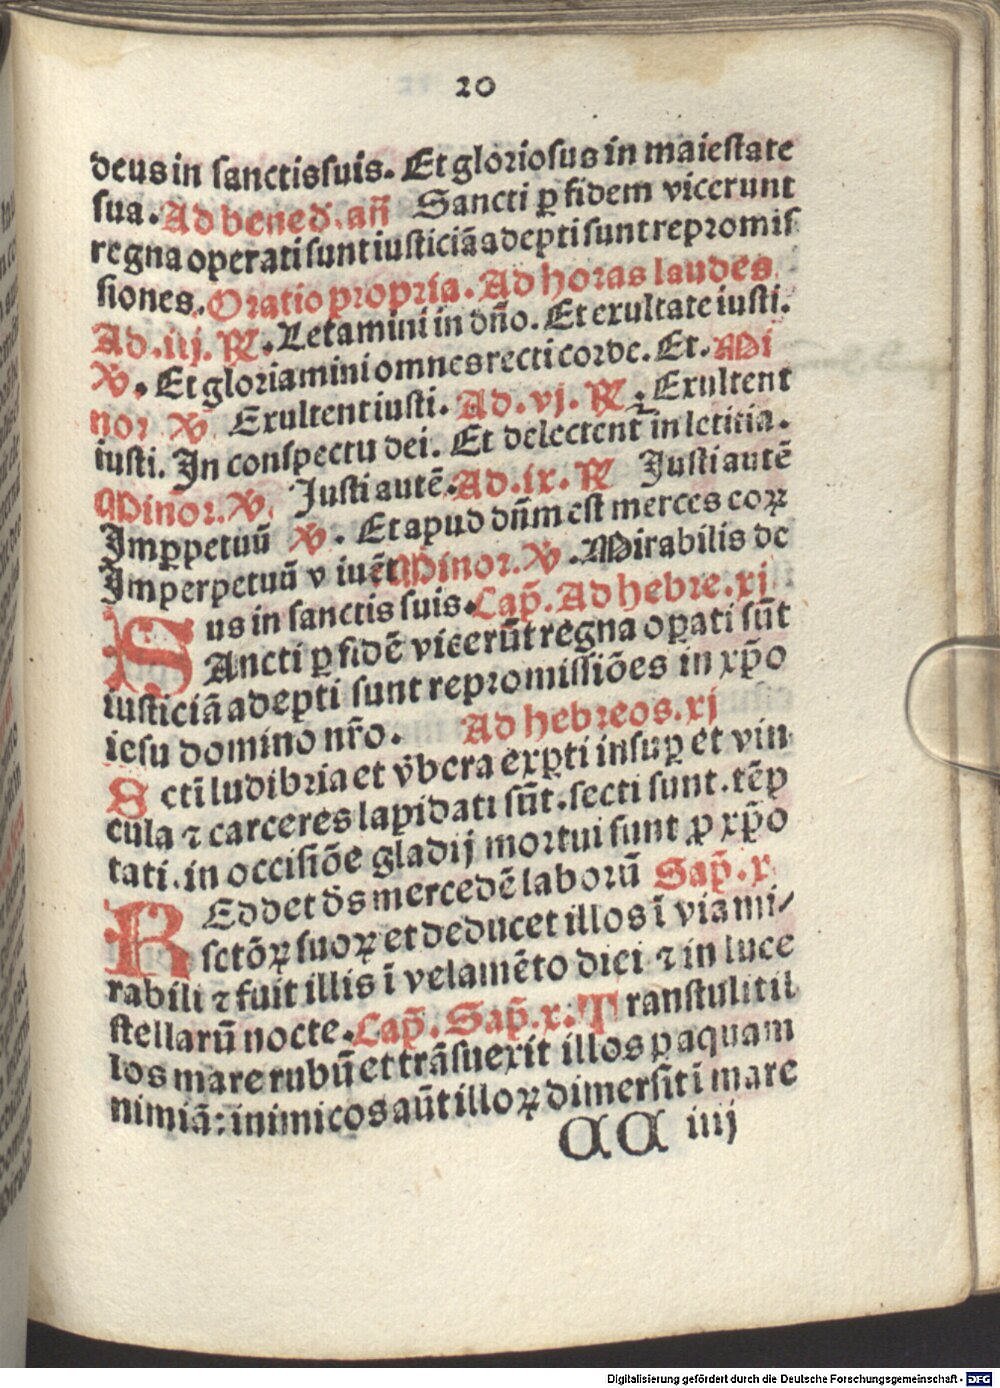 20
deus in sanctis suis. Et gloriosus in maiestate
sua. Ad bened̄. añ Sancti ꝑ fidem vicerunt
regna operati sunt iusticiā adepti sunt repromis
siones. Oratio propria. Ad horas laudes
Ad .iij. ℟. Letamini in dn̄o. Et exultate iusti.
℣. Et gloriamini omnes recti corde. Et. Mi
nor ℣ Exultent iusti. Ad .vj. ℟. Exultent
iusti. In conspectu dei. Et delectent in leticia.
Minor. ℣. Justi autē. Ad .ix. ℟ Justi autē
Imꝑpetuū ℣. Et apud dn̄m est merces eoꝝ
Imperpetuū viuēt Minor. ℣. Mirabilis de
us in sanctis suis. Cap̄. Ad hebre. xj
SAncti ꝑ fidē vicerūt regna oꝑati sūt
iusticiā adepti sunt repromissiōes in xp̄o
iesu domino nr̄o. Ad hebreos. xj
Sctī ludibria et v̄bera exꝑti insuꝑ et vin
cula ⁊ carceres lapidati sūt. secti sunt. tēp
tati. in occisiōe gladij mortui sunt ꝓ xp̄o
REddet ds̄ mercedē laborū Sap̄. x
sctōꝝ suoꝝ et deducet illos ī via mi/
rabili ⁊ fuit illis ī velamēto diei ⁊ in luce
stellarū nocte. Cap̄. Sap̄. x. Transtulit il
los mare rubū et trāsuexit illos ꝑ aquam
nimiā: inimicos aūt illoꝝ dimersit ī mare
AA iiij
Digitalisierung gefördert durch die Deutsche Forschungsgemeinschaft - DFG